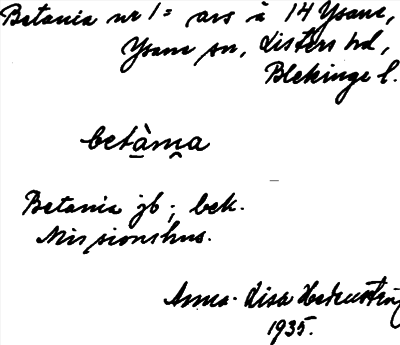 Betania nr 1 = avs å 14 Ysane,
Ysane sn, Listers hd,
Blekinge l.
betà̱ni̯a
Betania jb ; bek.
Missionshus.
Anna-Lisa
1935.